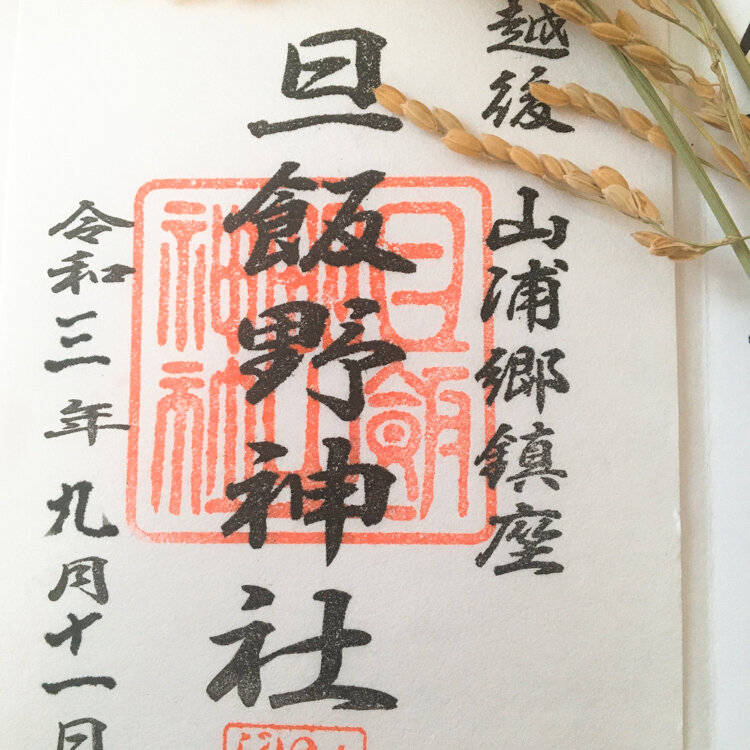 越後 山浦郷鎮座
旦飯野神社
令和三年九月十一日